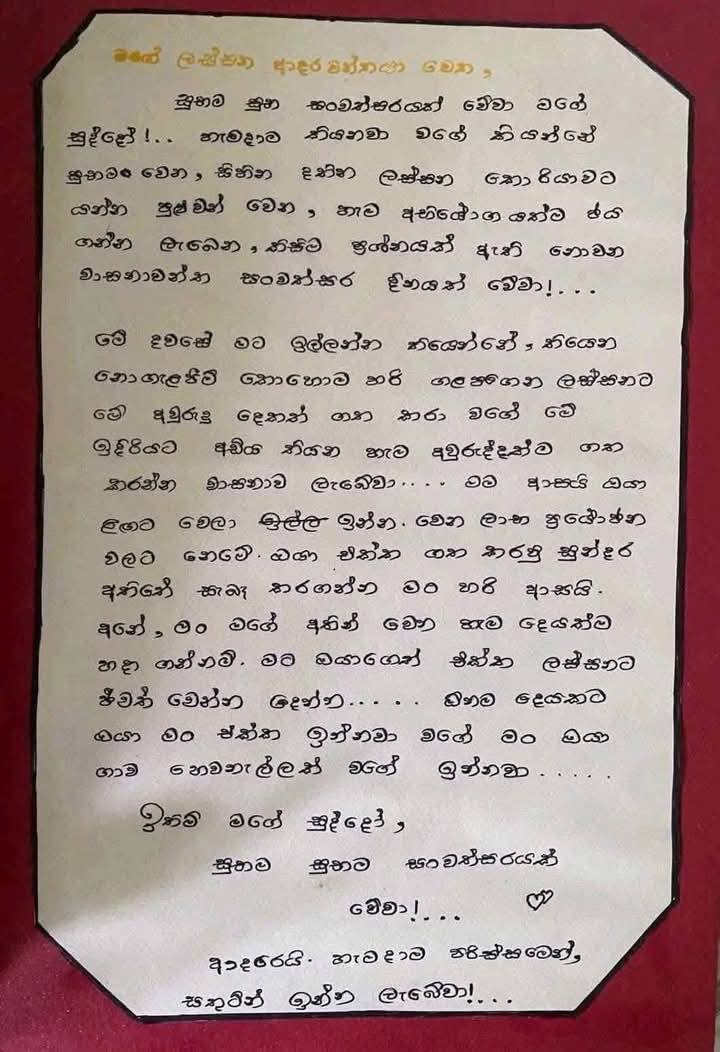 මගේ ලස්සන ආදරවන්තයා වෙත,
සුභම සුභ සංවත්සරයක් වේවා මගේ
සුද්දෝ!.. හැමදාම කියනවා වගේ කියන්නේ
සුභමං වෙන, සිහින දකින ලස්සන කොරියාවට
යන්න පුළුවන් වෙන, හැම අභියෝගයක්ම ජය
ගන්න ලැබෙන, කිසිම ප්‍රශ්නයක් ඇති නොවන
වාසනාවන්ත සංවත්සර දිනයක් වේවා!...
මේ දවසේ මට ඉල්ලන්න තියෙන්නේ, තියෙන
නොගැළපීම් කොහොම හරි ගලපගෙන ලස්සනට
මේ අවුරුදු දෙකක් ගත කරා වගේ මේ
ඉදිරියට අඩිය තියන හැම අවුරුද්දක්ම ගත
කරන්න වාසනාව ලැබේවා.... මම ආසයි ඔයා
ළඟට වෙලා ඉල්ල ඉන්න. වෙන ලාභ ප්‍රයෝජන
වලට නෙමේ. ඔයා එක්ක ගත කරපු සුන්දර
අතීතේ සැබෑ කරගන්න මං හරි ආසයි.
අනේ, මං මගේ අතින් වෙන හැම දෙයක්ම
හදා ගන්නම්. මට ඔයාගෙත් එක්ක ලස්සනට
ජීවත් වෙන්න දෙන්න..... ඕනම දෙයකට
ඔයා මං එක්ක ඉන්නවා වගේ මං ඔයා
ගාව හෙවනැල්ලක් වගේ ඉන්නවා.....
ඉතිම් මගේ සුද්දෝ,
සුභම සුභම සංවත්සරයක්
වේවා!...
ආදරෙයි. හැමදාම පරිස්සමෙන්,
සතුටින් ඉන්න ලැබේවා!...